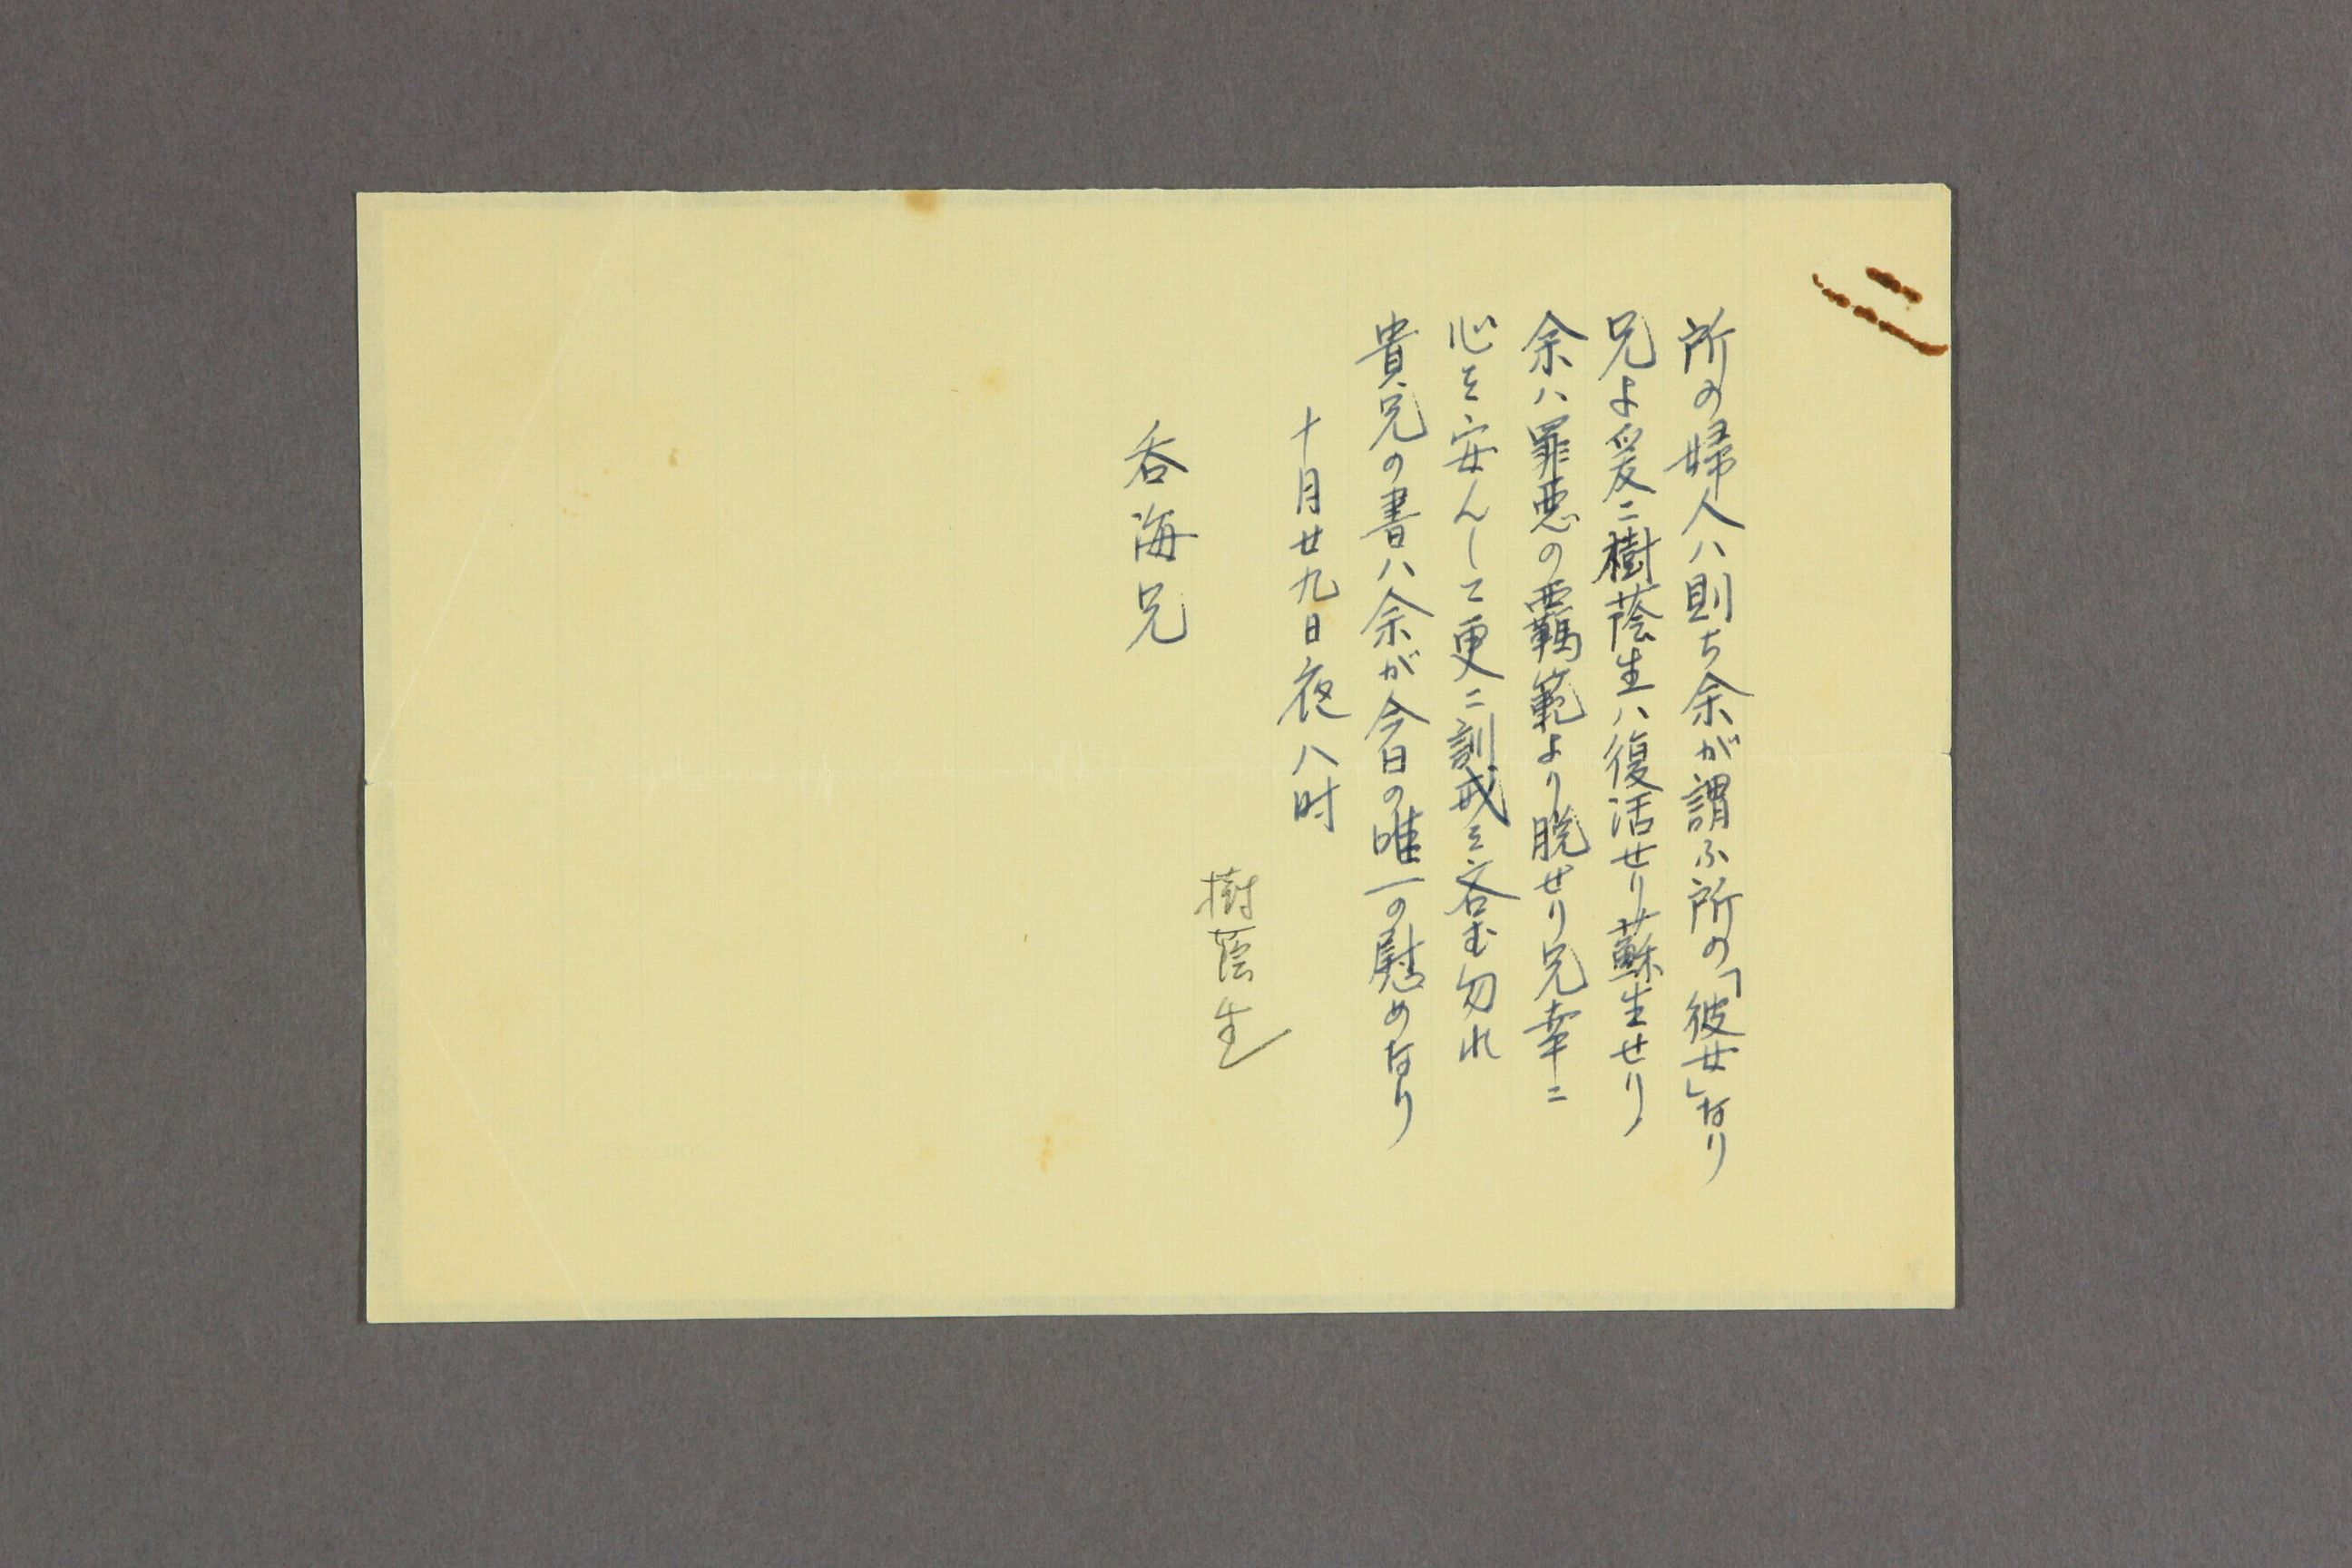 所の婦人ハ則ち余が謂ふ所の「彼女」なり
兄よ爰ニ樹蔭生ハ復活せり蘇生せり
余ハ罪悪の覊範より脱せり兄幸ニ
心を安んして更ニ訓戒を吝む勿れ
貴兄の書ハ余が今日の唯一の慰めなり
十月廿九日夜八时
樹蔭生
呑海兄